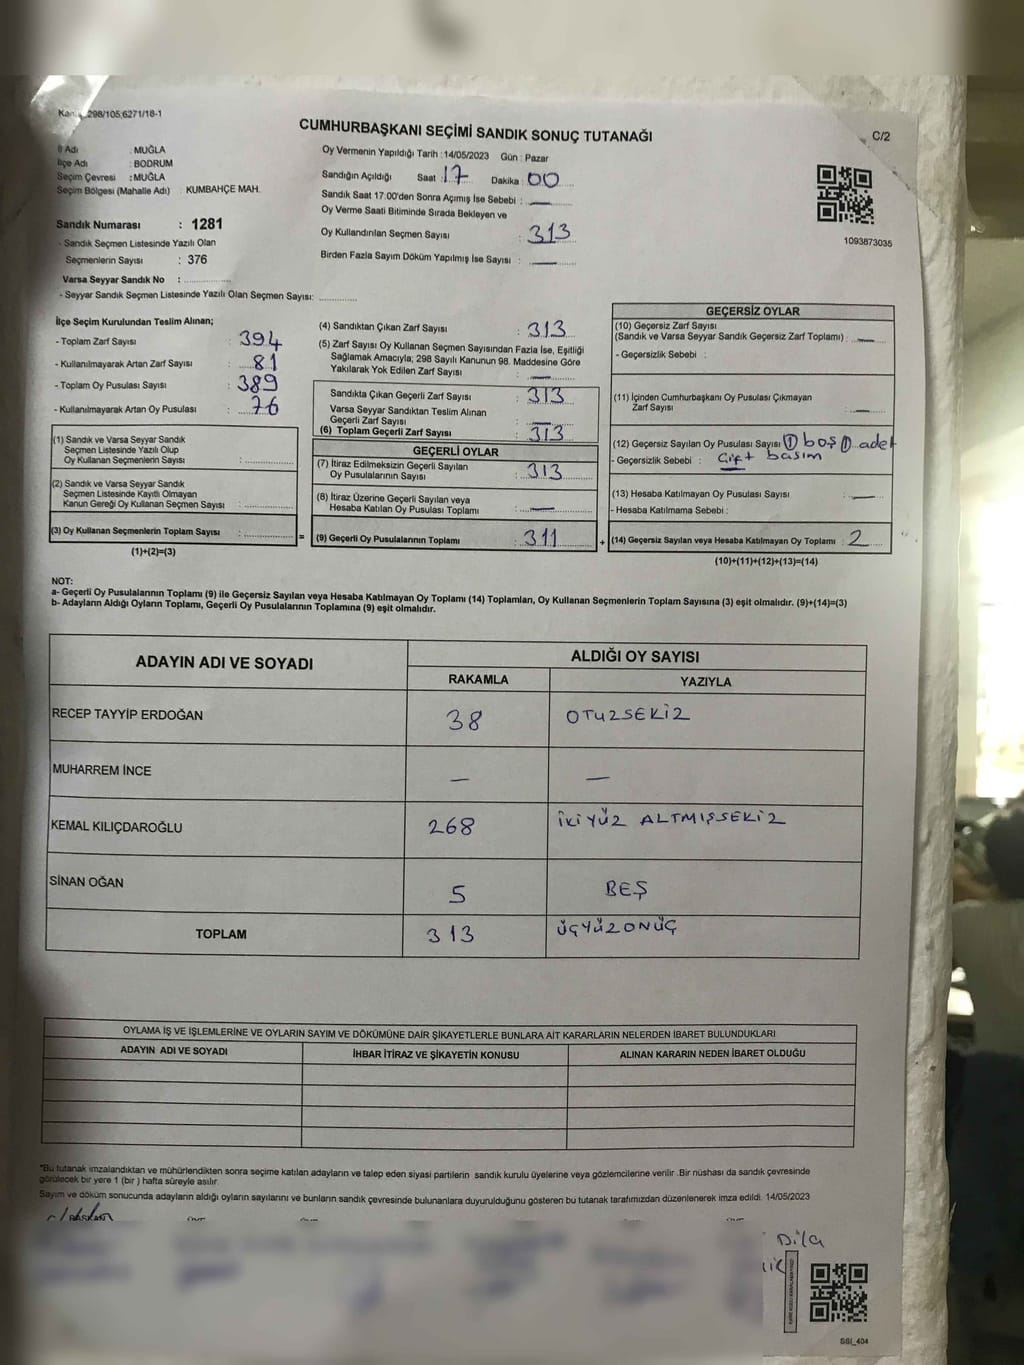 298/105;6271/16-1
CUMHURBAŞKANI SEÇİMİ SANDIK SONUÇ TUTANAĞI
C/2
İl Adı : MUĞLA
İlçe Adı : BODRUM
Seçim Çevresi : MUĞLA
Seçim Bölgesi (Mahalle Adı) : KUMBAHÇE MAH.
Sandık Numarası : 1281
- Sandık Seçmen Listesinde Yazılı Olan
Seçmenlerin Sayısı : 376
Varsa Seyyar Sandık No :
- Seyyar Sandık Seçmen Listesinde Yazılı Olan Seçmen Sayısı:
Oy Vermenin Yapıldığı Tarih :14/05/2023 Gün : Pazar
Sandığın Açıldığı Saat : 17 Dakika : 00
Sandık Saat 17.00'den Sonra Açımış İse Sebebi : —
Oy Verme Saati Bitiminde Sırada Bekleyen ve
Oy Kullandırılan Seçmen Sayısı : 313
Birden Fazla Sayım Döküm Yapılmış İse Sayısı : —
1093873035
İlçe Seçim Kurulundan Teslim Alınan;
- Toplam Zarf Sayısı : 394
- Kullanılmayarak Artan Zarf Sayısı : 81
- Toplam Oy Pusulası Sayısı : 389
- Kullanılmayarak Artan Oy Pusulası : 76
(1) Sandık ve Varsa Seyyar Sandık
Seçmen Listesinde Yazılı Olup
Oy Kullanan Seçmenlerin Sayısı :
(2) Sandık ve Varsa Seyyar Sandık
Seçmen Listesinde Kayıtlı Olmayan
Kanun Gereği Oy Kullanan Seçmen Sayısı :
(3) Oy Kullanan Seçmenlerin Toplam Sayısı :
(1)+(2)=(3)
(4) Sandıktan Çıkan Zarf Sayısı : 313
(5) Zarf Sayısı Oy Kullanan Seçmen Sayısından Fazla İse, Eşitliği
Sağlamak Amacıyla; 298 Sayılı Kanunun 98. Maddesine Göre
Yakılarak Yok Edilen Zarf Sayısı : —
Sandıkta Çıkan Geçerli Zarf Sayısı : 313
Varsa Seyyar Sandıktan Teslim Alınan
Geçerli Zarf Sayısı : —
(6) Toplam Geçerli Zarf Sayısı : 313
GEÇERLİ OYLAR
(7) İtiraz Edilmeksizin Geçerli Sayılan
Oy Pusulalarının Sayısı : 313
(8) İtiraz Üzerine Geçerli Sayılan veya
Hesaba Katılan Oy Pusulası Toplamı : —
= (9) Geçerli Oy Pusulalarının Toplamı : 311
GEÇERSİZ OYLAR
(10) Geçersiz Zarf Sayısı
(Sandık ve Varsa Seyyar Sandık Geçersiz Zarf Toplamı) : —
- Geçersizlik Sebebi :
(11) İçinden Cumhurbaşkanı Oy Pusulası Çıkmayan
Zarf Sayısı : —
(12) Geçersiz Sayılan Oy Pusulası Sayısı 1 boş 1 adet
- Geçersizlik Sebebi : Çift basım
(13) Hesaba Katılmayan Oy Pusulası Sayısı : —
- Hesaba Katılmama Sebebi :
+ (14) Geçersiz Sayılan veya Hesaba Katılmayan Oy Toplamı : 2
(10)+(11)+(12)+(13)=(14)
NOT:
a- Geçerli Oy Pusulalarının Toplamı (9) ile Geçersiz Sayılan veya Hesaba Katılmayan Oy Toplamı (14) Toplamları, Oy Kullanan Seçmenlerin Toplam Sayısına (3) eşit olmalıdır. (9)+(14)=(3)
b- Adayların Aldığı Oyların Toplamı, Geçerli Oy Pusulalarının Toplamına (9) eşit olmalıdır.
ADAYIN ADI VE SOYADI ALDIĞI OY SAYISI
RAKAMLA YAZIYLA
RECEP TAYYİP ERDOĞAN 38 OTUZSEKİZ
MUHARREM İNCE — —
KEMAL KILIÇDAROĞLU 268 İKİYÜZ ALTMIŞSEKİZ
SİNAN OĞAN 5 BEŞ
TOPLAM 313 ÜÇYÜZONÜÇ
OYLAMA İŞ VE İŞLEMLERİNE VE OYLARIN SAYIM VE DÖKÜMÜNE DAİR ŞİKAYETLERLE BUNLARA AİT KARARLARIN NELERDEN İBARET BULUNDUKLARI
ADAYIN ADI VE SOYADI İHBAR İTİRAZ VE ŞİKAYETİN KONUSU ALINAN KARARIN NEDEN İBARET OLDUĞU
*Bu tutanak imzalandıktan ve mühürlendikten sonra seçime katılan adayların ve talep eden siyasi partilerin sandık kurulu üyelerine veya gözlemcilerine verilir .Bir nüshası da sandık çevresinde
görülecek bir yere 1 (bir ) hafta süreyle asılır.
Sayım ve döküm sonucunda adayların aldığı oyların sayılarını ve bunların sandık çevresinde bulunanlara duyurulduğunu gösteren bu tutanak tarafımızdan düzenlenerek imza edildi. 14/05/2023
BAŞKAN
Dila
SSI_404